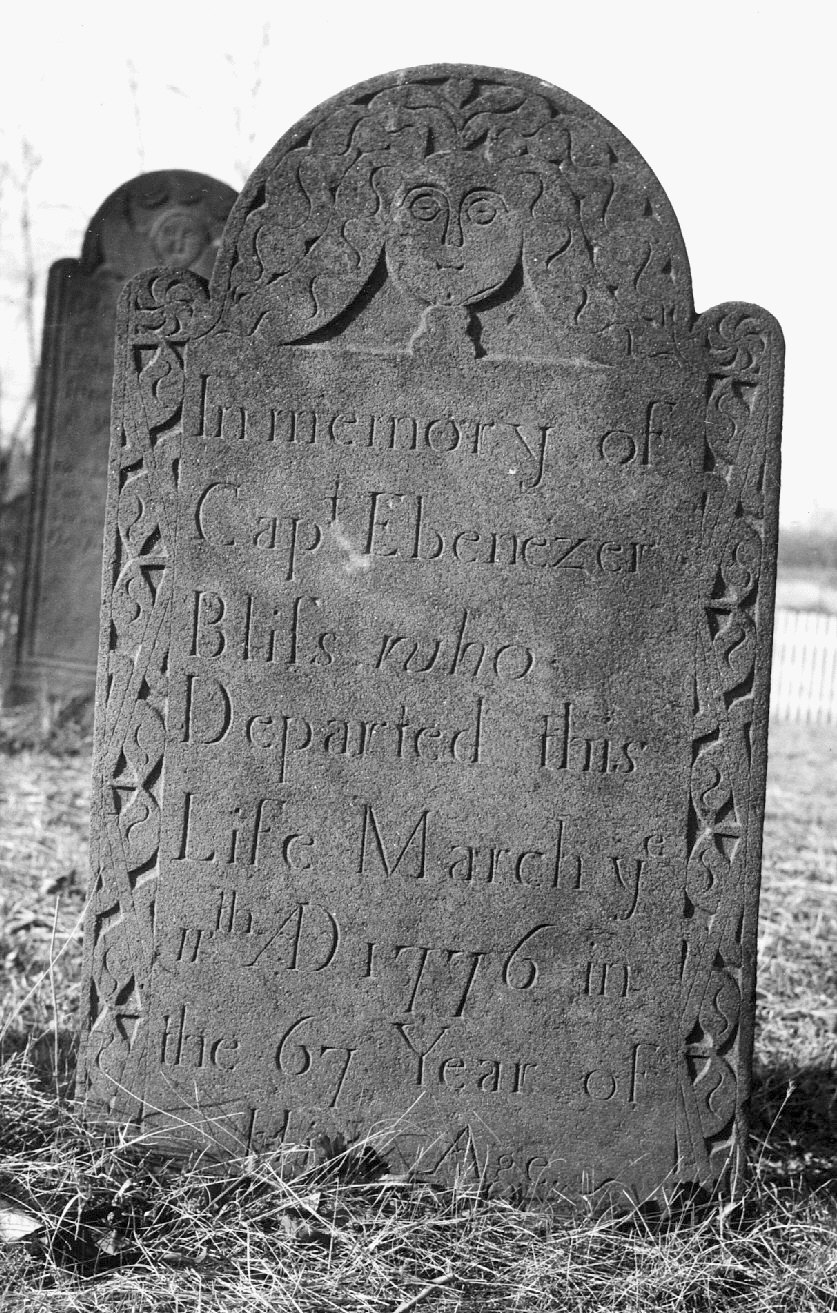 In memory of
Capᵗ Ebenezer
Bliſs who
Departed this
Life March yᵉ
11ᵗʰ AD 1776 in
the 67 Year of
His Age